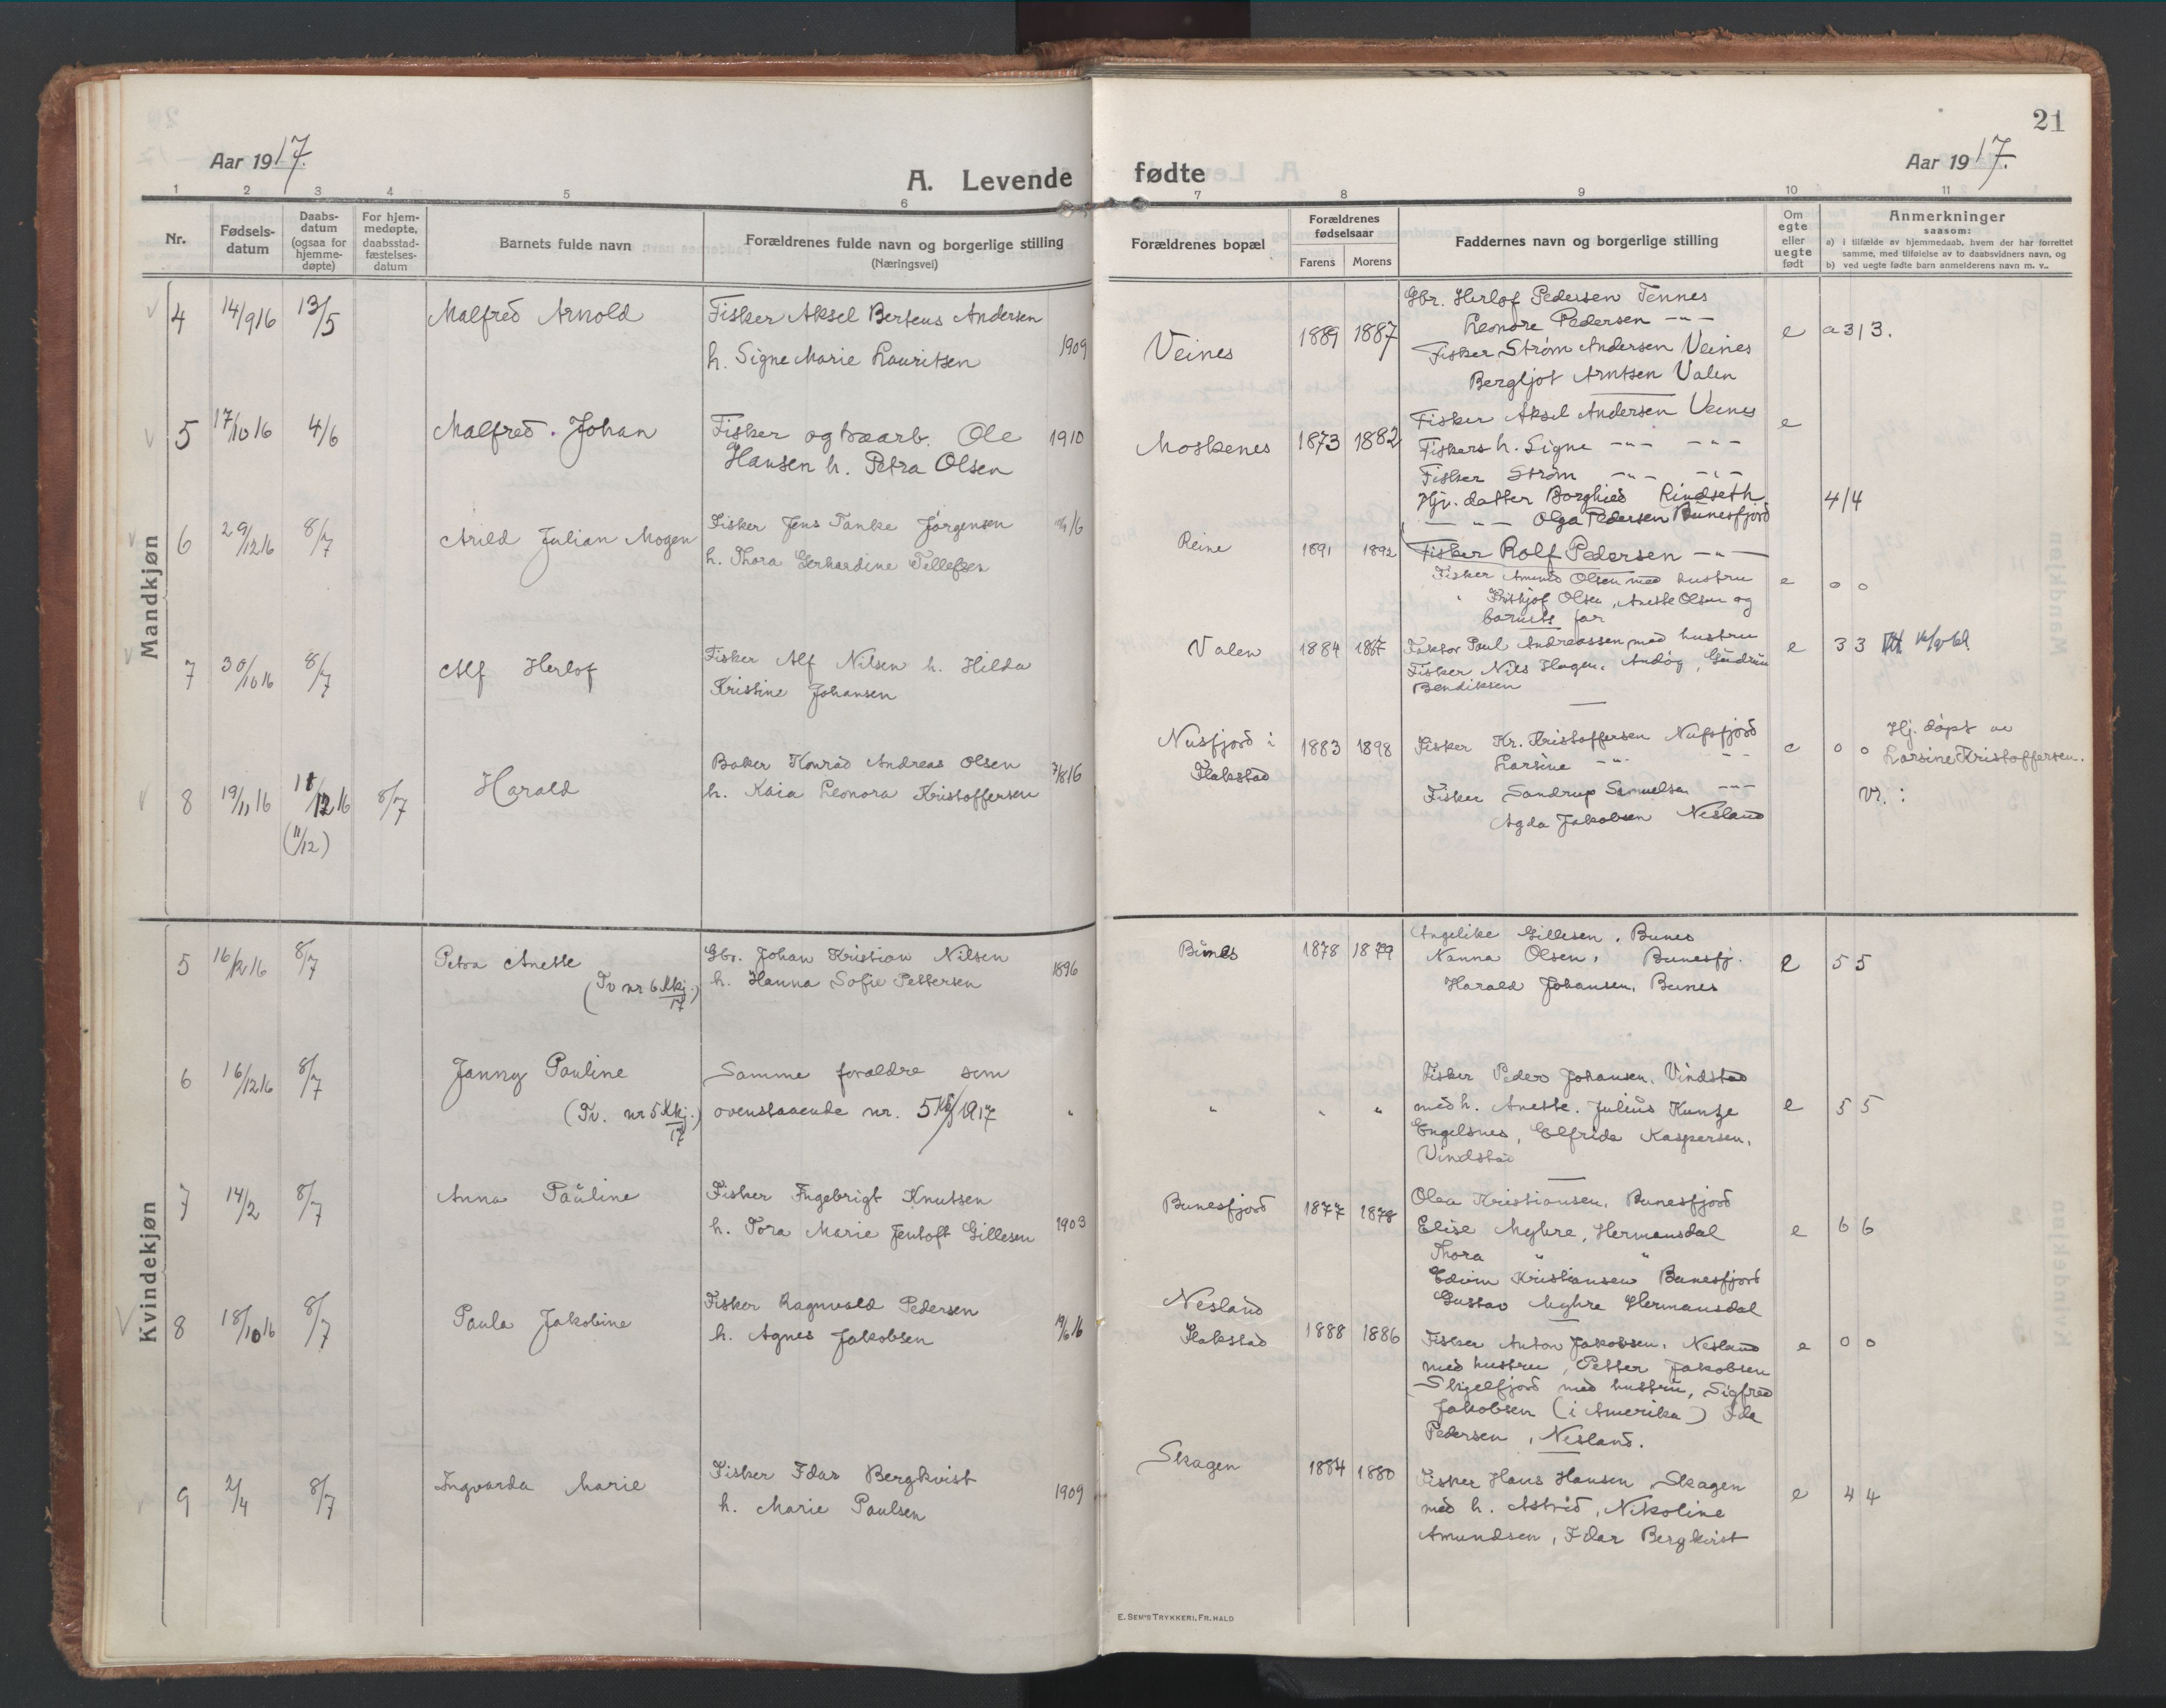 21
Aar 1917.
A. Levende
fødte
Aar 1917.
1 2 3 4 5 6 7 8 9 10 11
Nr.
Fødsels-
datum
Daabs-
datum
(ogsaa for
hjemme-
døpte)
For hjem-
medøpte,
daabsstad-
fæstelses-
datum
Barnets fulde navn
Forældrenes fulde navn og borgerlige stilling
(Næringsvei)
Forældrenes bopæl
Forældrenes
fødselsaar
Farens Morens
Faddernes navn og borgerlige stilling
Om
egte
eller
uegte
født
Anmerkninger
saasom:
a) i tilfælde av hjemmedaab, hvem der har forrettet
samme, med tilføielse av to daabsvidners navn, og
b) ved uegte fødte barn anmelderens navn m. v..
Mandkjøn
4 14/9 16 13/5 Malfred Arnold
Fisker Aksel Berteus Andersen
h. Signe Marie Lauritsen 1909
Veines 1889 1887
Gbr. Herlof Pedersen Tennes
Leonore Pedersen -"-
Fisker Strøm Andersen Veines
Bergljot Arntsen Valen
e a 3/3.
5 17/10 16 4/6 Malfred Johan
Fisker og Ole 1910
Hansen h. Petra Olsen
Moskenes 1873 1882
Fisker Aksel Andersen Veines
Fiskers h. Signe -"- -"-
Fisker Strøm -"- -"-
Hjv. datter Borghild Rindseth
-"- Olga Pedersen Bunesfjord
Fisker Rolf Pedersen -"-
e 4/4
6 29/12 16 8/7 Arild Julian Mogen
Fisker Jens Tanke Jørgensen
h. Thora Gerhardine Tellefsen
Reine 1891 1892
Fisker Amund Olsen med hustru
" Frithjof Olsen, Anette Olsen og
barnets far
e 0 0
7 30/10 16 8/7 Alf Herlof
Fisker Alf Nilsen h. Hilda
Kristine Johansen
Valen 1884 1887
Faktor Paul Andreassen med hustru
Fisker Nils Hagen, Andøy, Gudrun
Bendiksen
e 3 3
8 19/11 16 11/12 16 8/7 Harald
(11/12)
Baker Konrad Andreas Olsen
h. Kaia Leonora Kristoffersen 7/8 16
Nusfjord i
Flakstad
1883 1898
Fisker Kr. Kristoffersen Nufsfjord
Larsine -"- -"-
Fisker Sandrup Samuelsen -"-
Agda Jakobsen Nesland
e 0 0
Hj. døpt av
Larsine Kristoffersen.
Vr. :
Kvindekjøn
5 16/12 16 8/7 Petra Anette
(Tv nr 6 Kkj./17)
Gbr. Johan Kristian Nilsen
h. Hanna Sofie Pettersen 1896
Bunes 1878 1879
Angelike Gillesen, Bunes
Nanna Olsen, Bunesfj.
Harald Johansen, Bunes
e 5 5
6 16/12 16 8/7 Janny Pauline
(Tv. nr 5 Kkj./17)
Samme forældre som
ovenstaaende nr. 5 Kkj/1917 "
" " "
Fisker Peder Johansen, Vindstad
med h. Anette. Julius Kuntze
Engelsnes, Elfrida Kaspersen,
Vindstad
e 5 5
7 14/2 8/7 Anna Pauline
Fisker Ingebrigt Knutsen
h. Tora Marie Jentoft Gillesen 1903
Bunesfjord 1877 1878
Olaa Kristiansen, Bunesfjord
Elise Myhre, Hermansdal
Thora " "
Edvin Kristiansen Bunesfjord
Gustav Myhre Hermansdal
e 6 6
8 18/10 16 8/7 Paula Jakobine
Fisker Ragnvald Pedersen
h. Agnes Jakobsen 19/6 16
Nesland
Flakstad
1888 1886
Fisker Anton Jakobsen, Nesland
med hustru, Petter Jakobsen
Skjelfjord med hustru, Sigfred
Jakobsen (i Amerika) Ida
Pedersen, Nesland.
e 0 0
9 2/4 8/7 Ingvarda Marie
Fisker Idar Bergkvist
h. Marie Paulsen 1909
Skagen 1884 1880
Fisker Hans Hansen Skagen
med h. Astrid, Nikoline
Amundsen, Idar Bergkvist
e 4 4
E. SEM'S TRYKKERI, FR.HALD